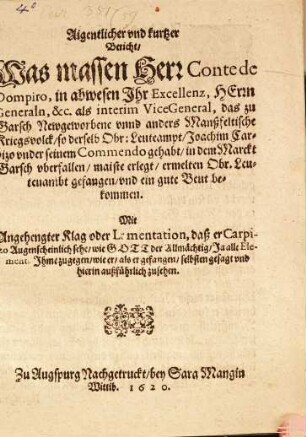 Aigentlicher vnd kurtzer
Bericht/
Was massen Herr Conte de
Dompiro, in abwesen Ihr Excellenz, HErrn
Generaln, &c. als interim ViceGeneral, das zu
Garsch Newgeworbene vnnd anders Manßfeltische
Kriegsvolck/ so derselb Obr: Leuteampt/ Joachim Car-
pizo vnder seinem Commendo gehabt/ in dem Marckt
Garsch vberfallen/ maiste erlegt/ ermelten Obr. Leu-
tenambt gefangen/ vnd ein gute Beut be-
kommen.
Mit
Angehengter Klag oder Lamentation, daß er Carpi-
zo Augenscheinlich sehe/ wie GOTT der Allmächtig/ Ja alle Ele-
ment/ Ihme zugegen/ wie er/ als er gefangen/ selbsten gesagt vnd
hierin außführlich zusehen.
Zu Augspurg Nachgetruckt/ bey Sara Mangin
Wittib. 1620.